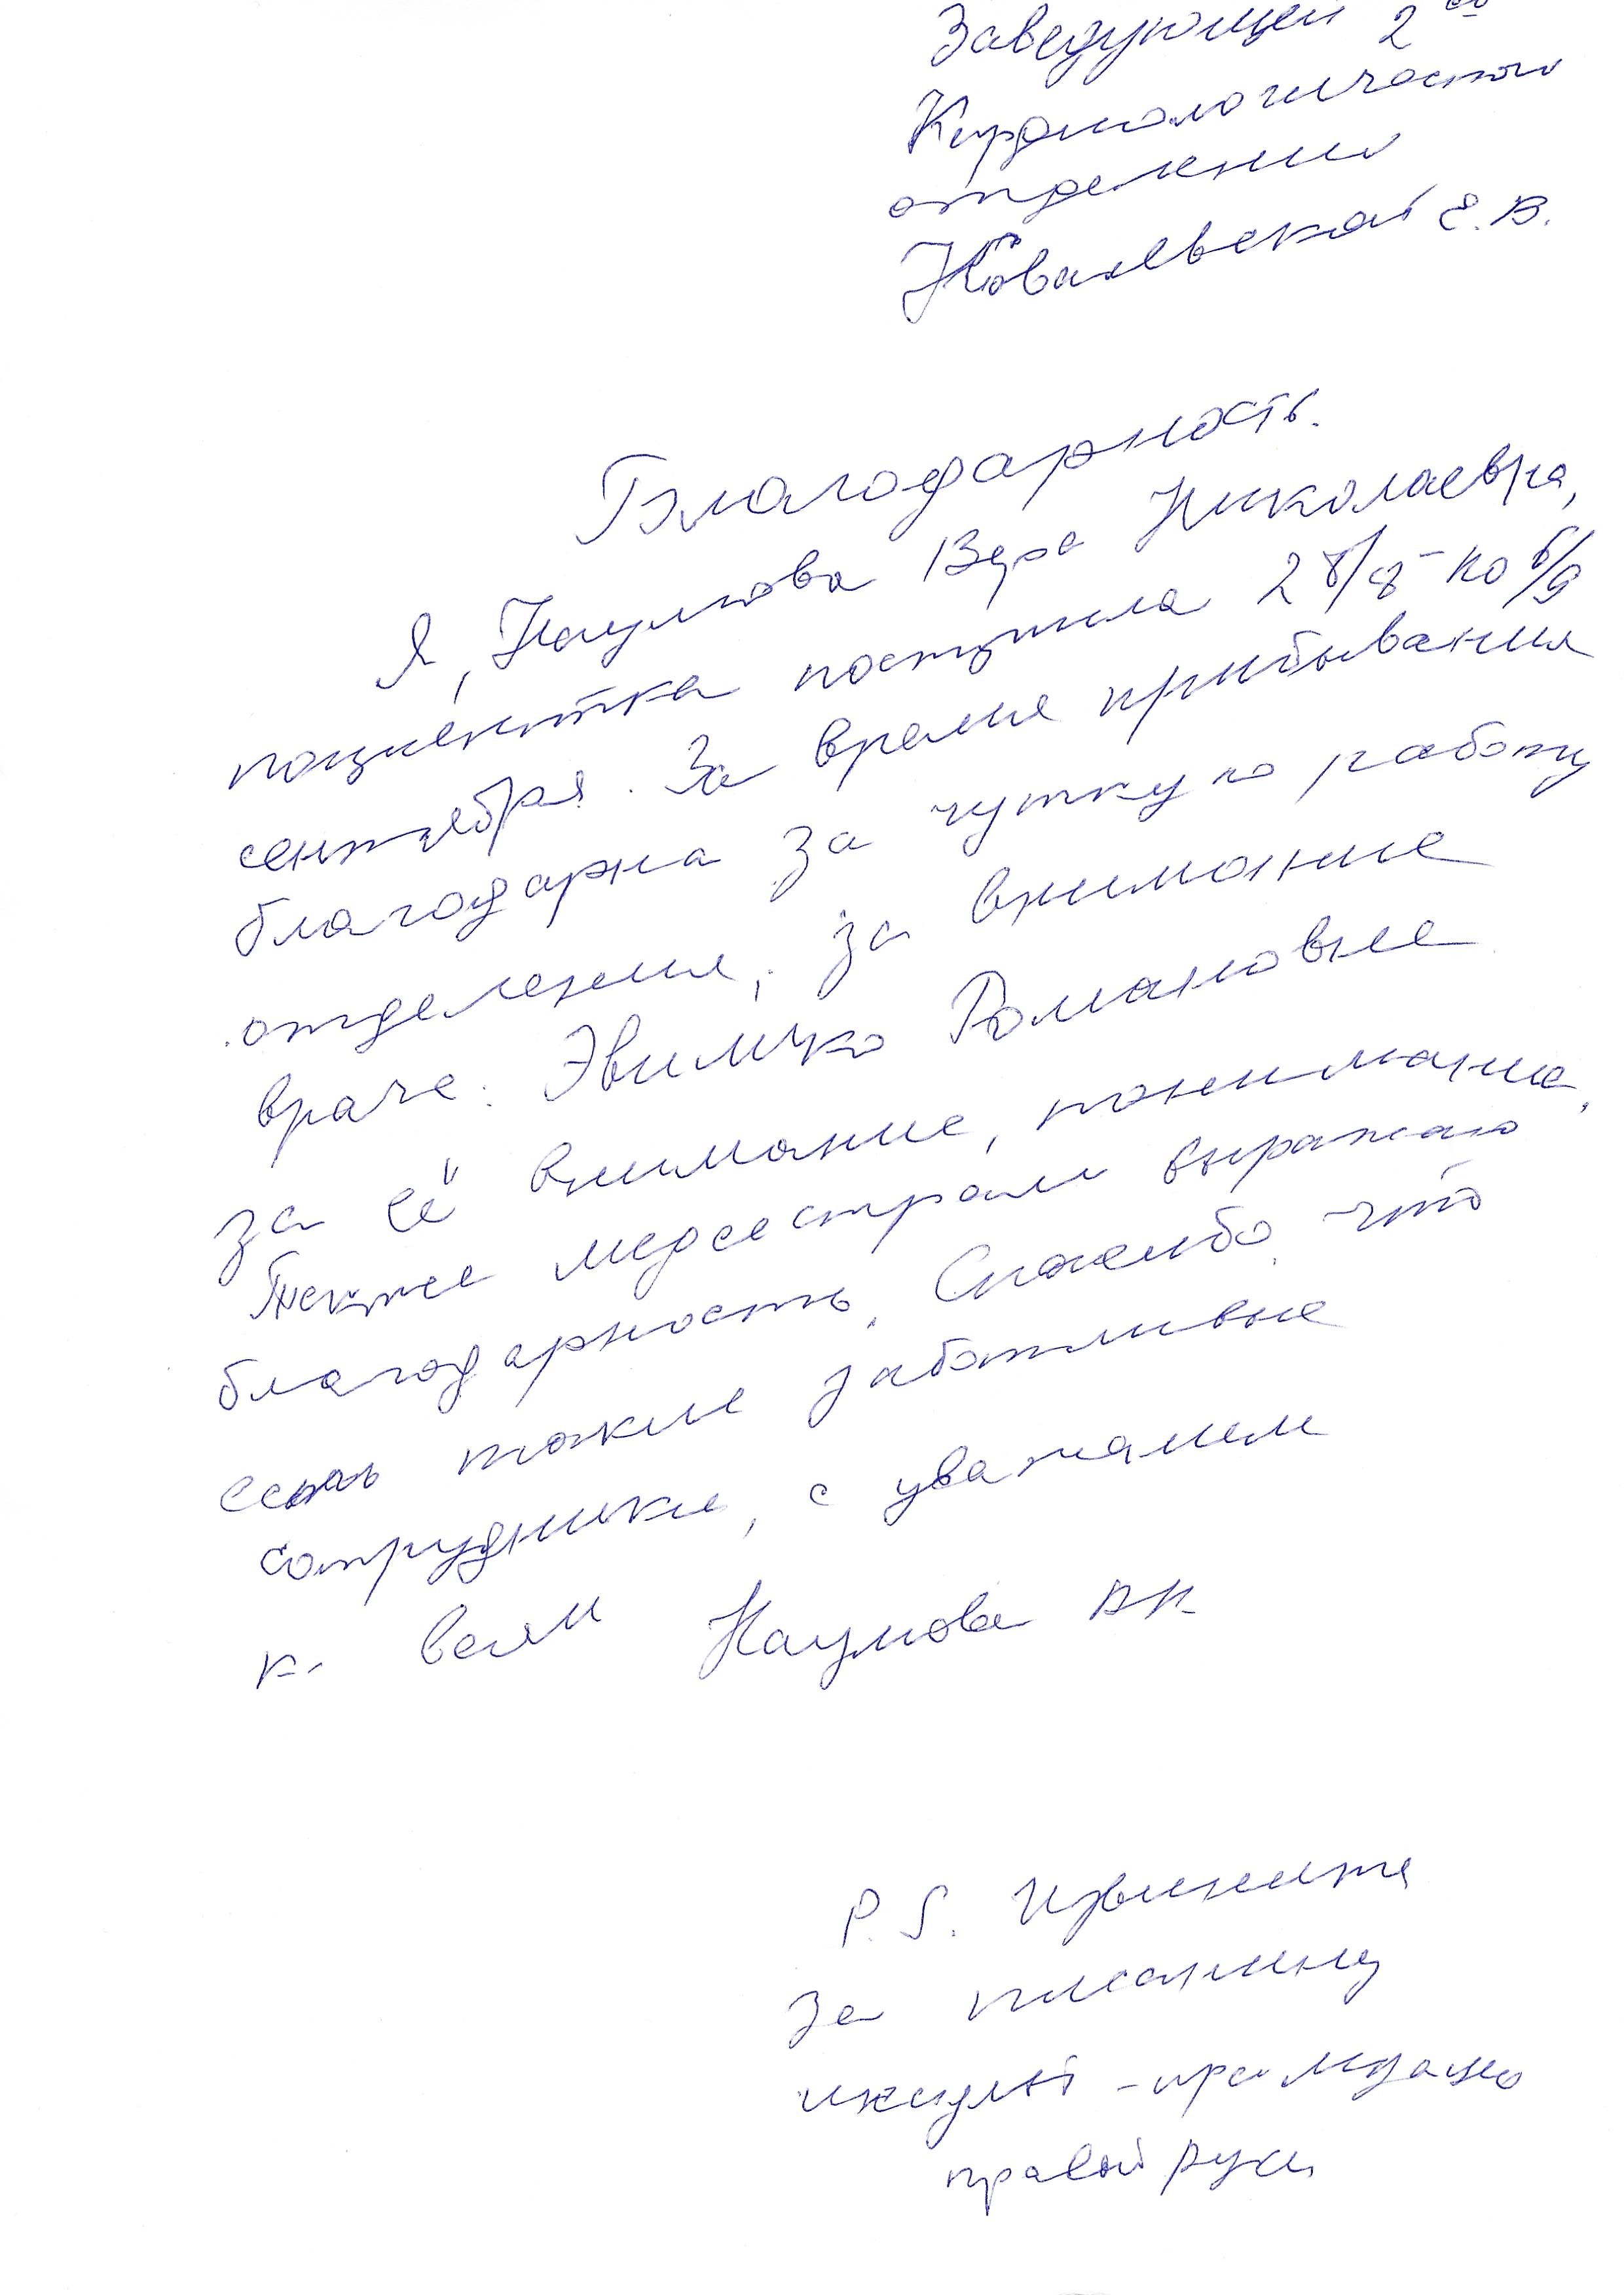 Заведующей 2ой
Кардиологической
отделении
Ковалевской Е.В.
Благодарность.
Я, Наумова Вера Николаевна,
пациентка поступила 28/8 - по 6/9
сентября. За время прибывания
благодарна за чуткую работу
отделения, за внимание
враче: Романовне
за её внимание, понимание.
Также медсестрам выражаю
благодарность. Спасибо, что
есть такие заботливые
сотрудники, с уважением
к всем Наумова ВН
P.S. Извините
за писанину
правой руки